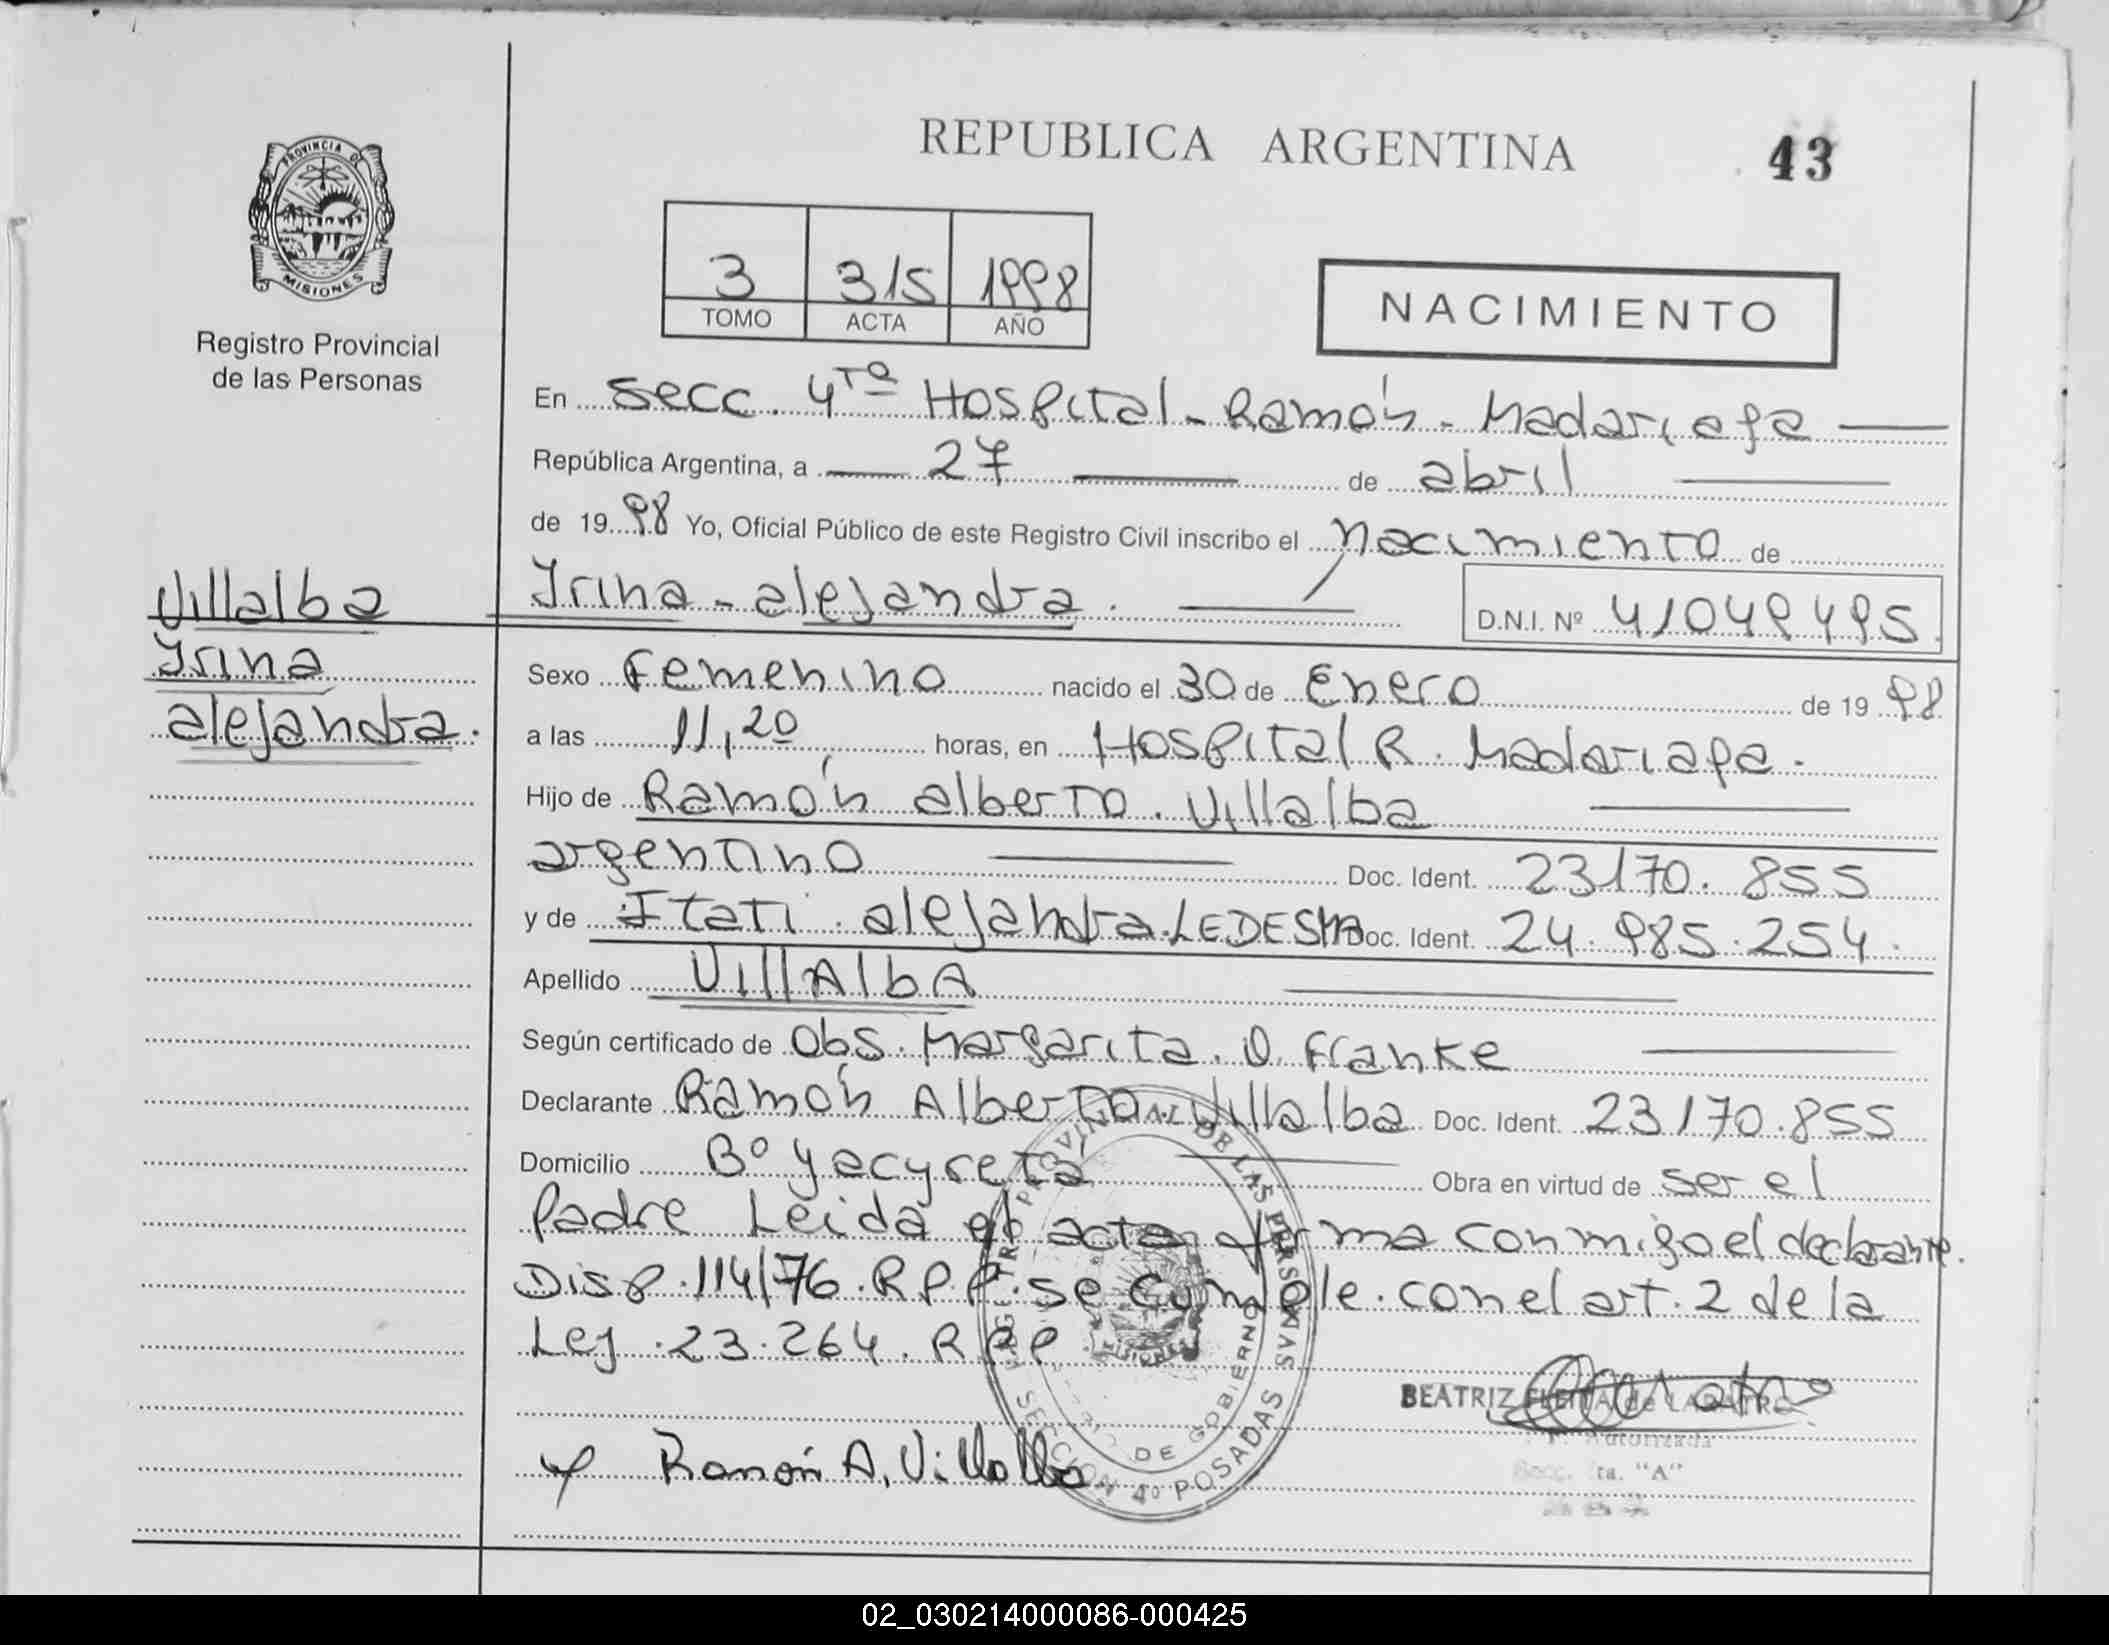 REPUBLICA ARGENTINA
43
PROVINCIA DE
MISIONES
Registro Provincial
de las Personas
3 3/5 1998
TOMO ACTA AÑO
NACIMIENTO
En secc. 4ta Hospital - Ramón - Madariaga
República Argentina, a 27 de abril
de 1998 Yo, Oficial Público de este Registro Civil inscribo el nacimiento de
Irina - alejandra. D.N.I. Nº 41049495.
Villalba
Irina
alejandra.
Sexo Femenino nacido el 30 de Enero de 1998
a las 11,20 horas, en Hospital R. Madariaga.
Hijo de Ramón alberto. Villalba
argentino Doc. Ident. 23170.855
y de Itati alejandra. LEDESMA Doc. Ident. 24.985.254.
Apellido VillAlbA
Según certificado de Obs. Margarita. O. Franke
Declarante Ramón Alberto Villalba Doc. Ident. 23170.855
Domicilio Bº yacyreta Obra en virtud de ser el
Padre Leida el acta firma conmigo el declarante.
Disp. 114/76. R.P.P. se cumple. con el art. 2 de la
Ley. 23.264. R P P
REGISTRO PROVINCIAL DE LAS PERSONAS
MISIONES
DE GOBIERNO
SECCION 4º POSADAS
BEATRIZ FLEITA de
Autorizada
Secc. ta. "A"
Ramón A. Villalba
02_030214000086-000425